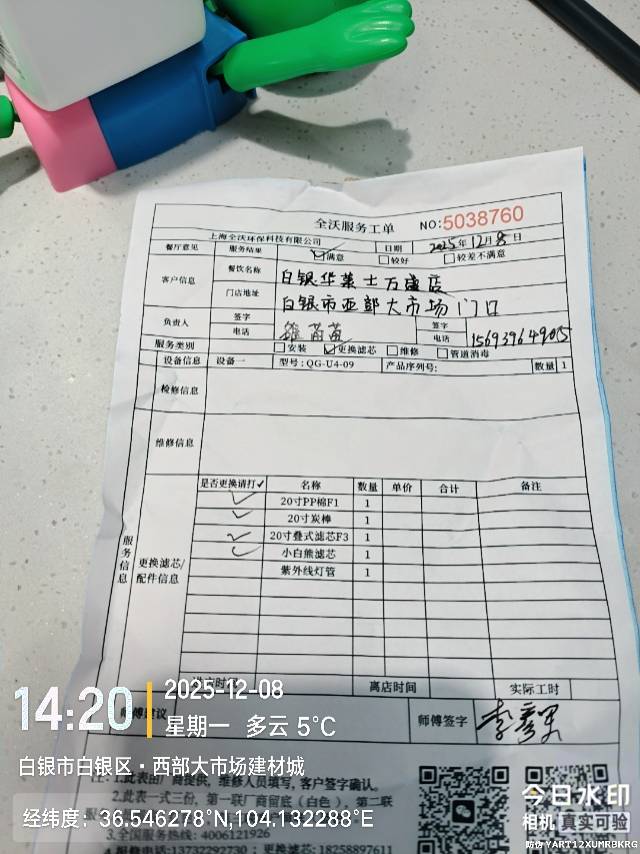 全沃服务工单 NO:5038760
上海全沃环保科技有限公司
餐厅意见 服务结果 满意 较好 较差不满意 日期 2025年12月8日
客户信息 餐饮名称 白银华莱士万盛店
门店地址 白银市西部大市场门口
负责人 签字 签字
电话 电话
服务类别 安装 更换滤芯 维修 管道消毒
设备信息 设备一 型号:QG-U4-09 产品序列号: 数量 1
检修信息
维修信息
服务信息
更换滤芯/配件信息
是否更换请打✓ 名称 数量 单价 合计 备注
✓ 20寸PP棉F1 1
✓ 20寸炭棒 1
✓ 20寸叠式滤芯F3 1
✓ 小白熊滤芯 1
紫外线灯管 1
离店时间 实际工时
师傅签字
14:20
2025-12-08
星期一 多云 5°C
白银市白银区·西部大市场建材城
注:1.此表由厂商提供,维修人员填写,客户签字确认。
2.此表一式三份,第一联厂留底(白色),第二联
经纬度:36.546278°N,104.132288°E
3.全国服务热线:4006121926
今日水印
相机 真实可验
防伪 YART12XUMRBKRG